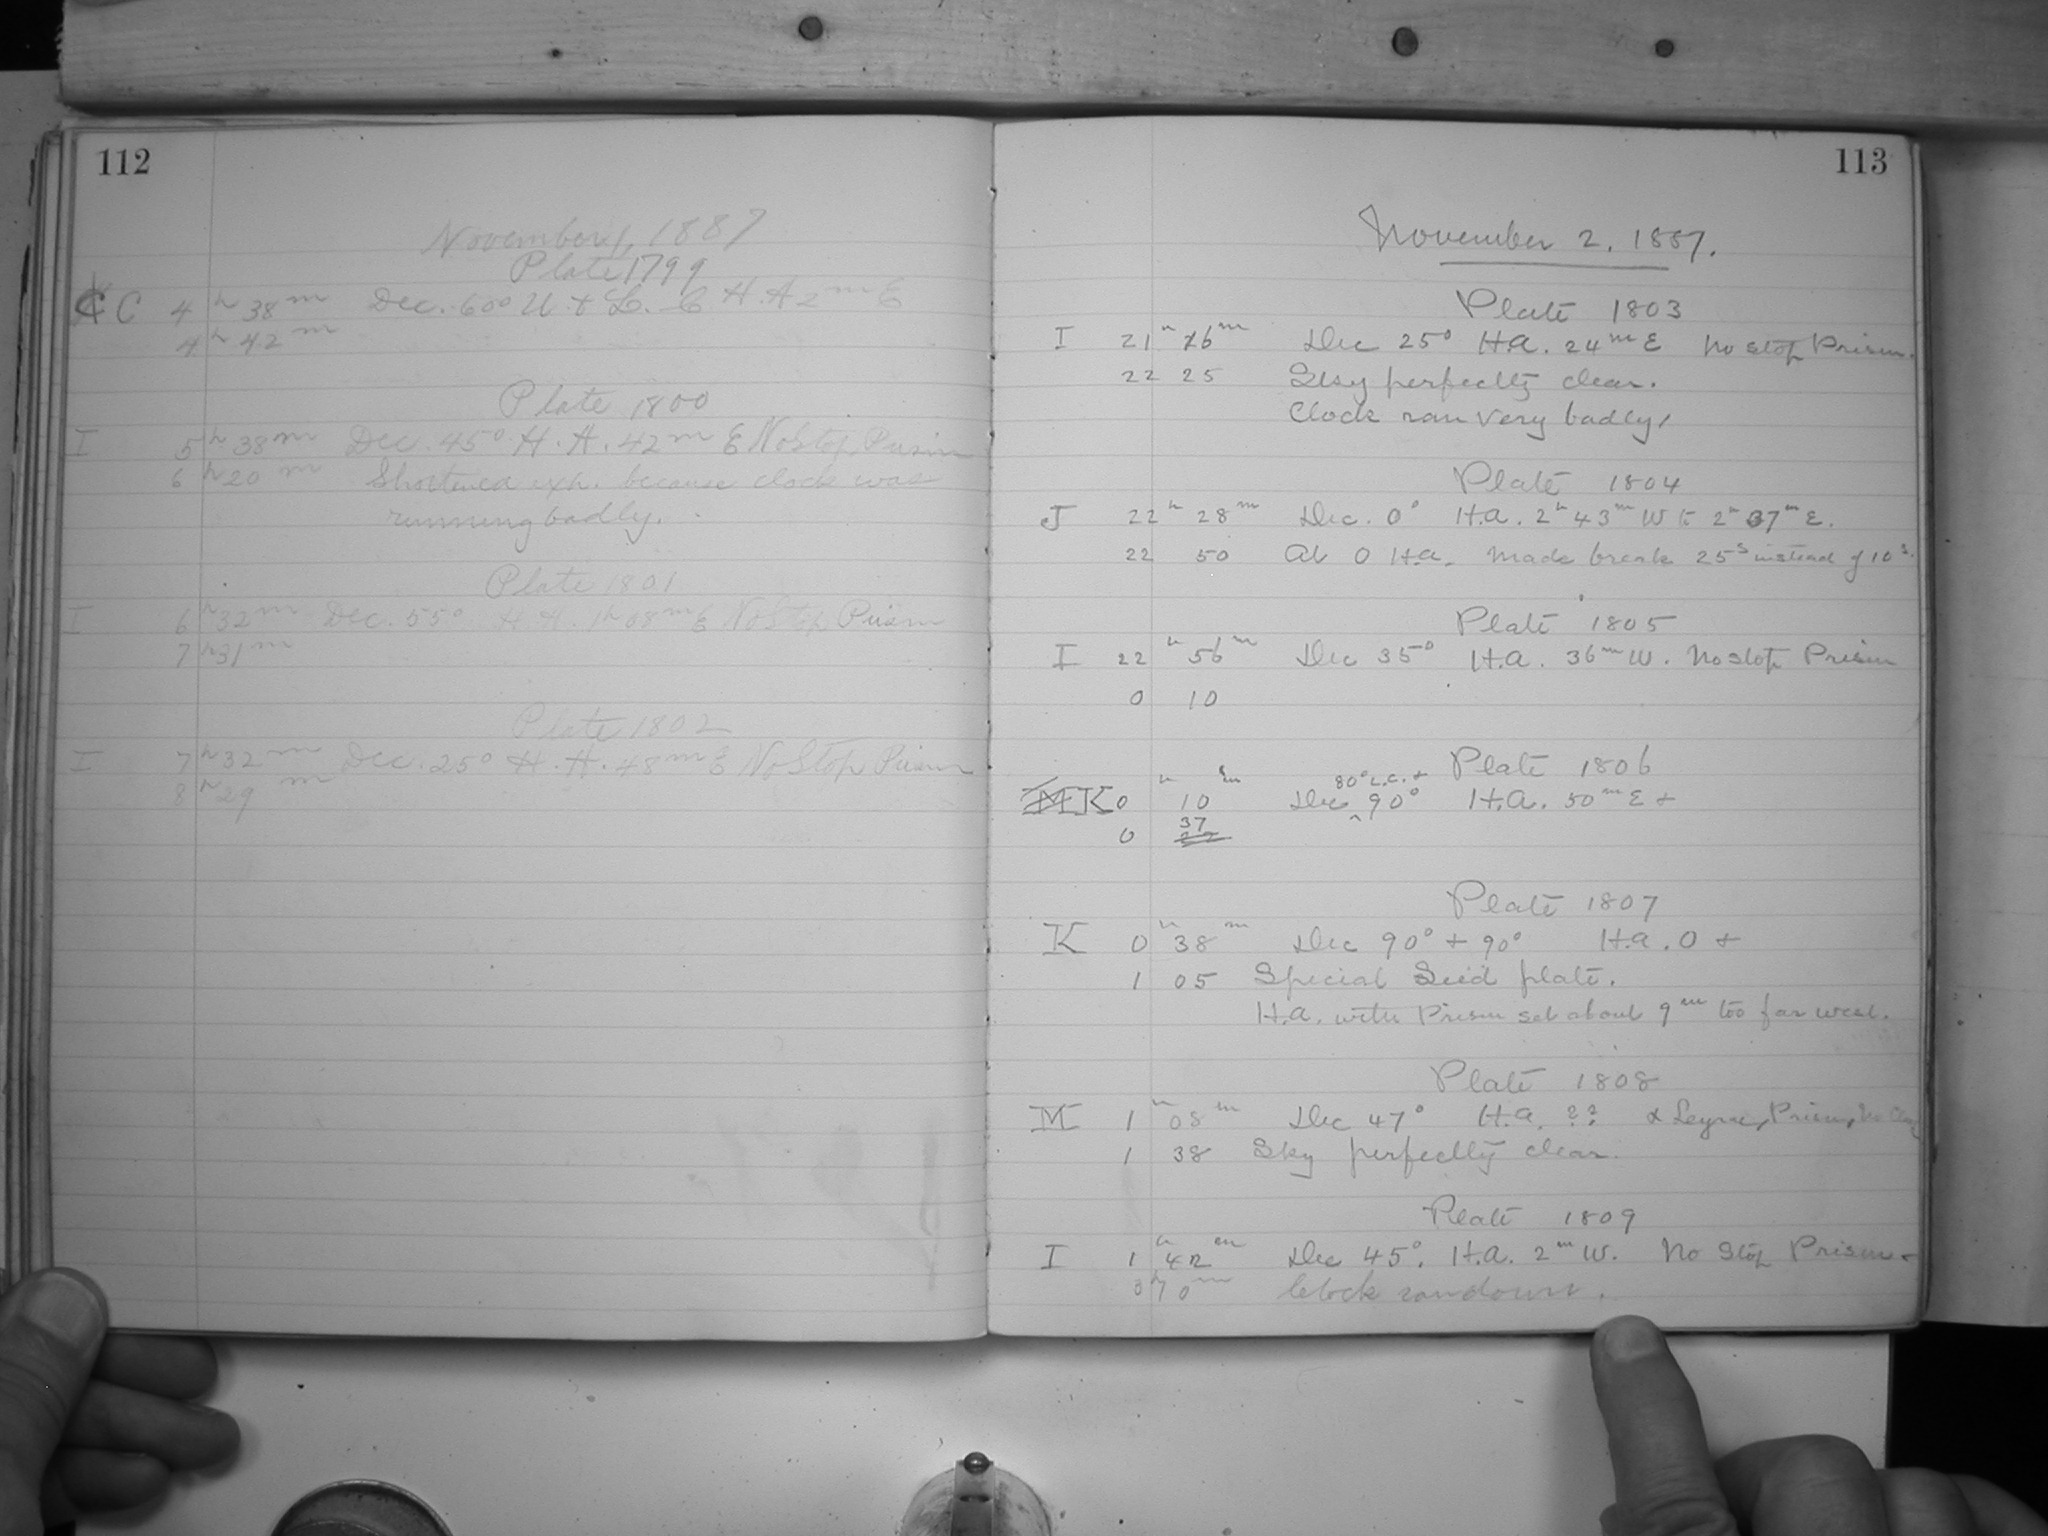 112
November 1, 1887
Plate 1799
C 4 h 38 m Dec. 60° U. + L. C H. A 2 m E
4 h 42 m
Plate 1800
I 5 h 38 m Dec. 45° H. A. 42 m E No Stop Prism
6 h 20 m Shortened exp. because clock was
running badly.
Plate 1801
I 6 h 32 m Dec. 55° H. A. 1h 08 m E No Stop Prism
7 h 31 m
Plate 1802
I 7 h 32 m Dec. 25° H. A. 48 m E No Stop Prism
8 h 29 m
113
November 2, 1887.
Plate 1803
I 21 h 26 m Dec 25° H.A. 24 m E No Stop Prism.
22 25 Sky perfectly clear.
Clock ran very badly,
Plate 1804
J 22 h 28 m Dec. 0° H.A. 2 h 43 m W to 2 h 37 m E.
22 50 At 0 H.A. Made break 25 s instead of 10 s.
Plate 1805
I 22 h 56 m Dec 35° H.A. 36 m W. No Stop Prism
0 10
Plate 1806
K 0 h 10 m Dec 80° L.C. + 90° H.A. 50 m E +
0 37
Plate 1807
K 0 h 38 m Dec 90° + 90° H.A. 0 +
1 05 Special Seed plate.
H.A. with Prism set about 9 m too far west.
Plate 1808
M 1 h 08 m Dec 47° H.A. ?? α Lyrae, Prism, No
1 38 Sky perfectly clear.
Plate 1809
I 1 h 42 m Dec 45°. H.A. 2 m W. No Stop Prism
0 m Clock ran down.